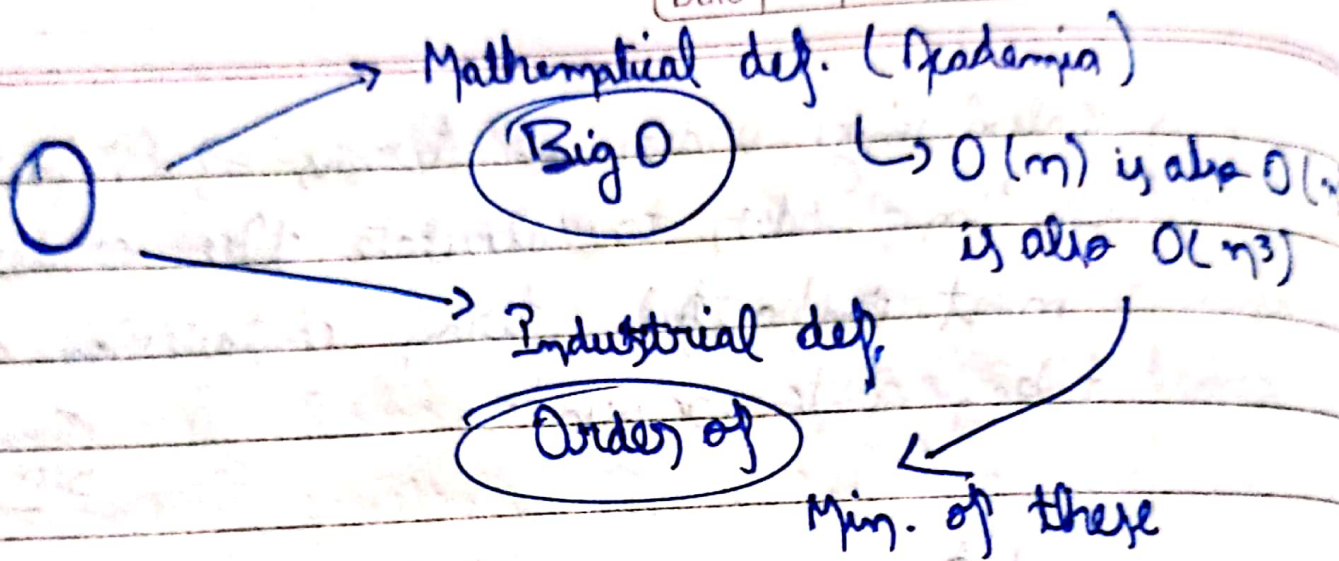 Mathematical def. (Academia)
O
Big O
↳ O(n) is also O(
is also O(n³)
Industrial def.
Order of
Min. of these